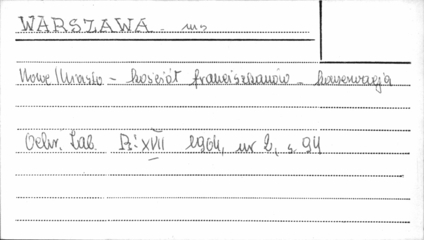 WARSZAWA - ms
Nowe Miasto - kościół franciszkanów - konserwacja
Ochr. Zab. R: XVII 1964, nr 2, s. 94